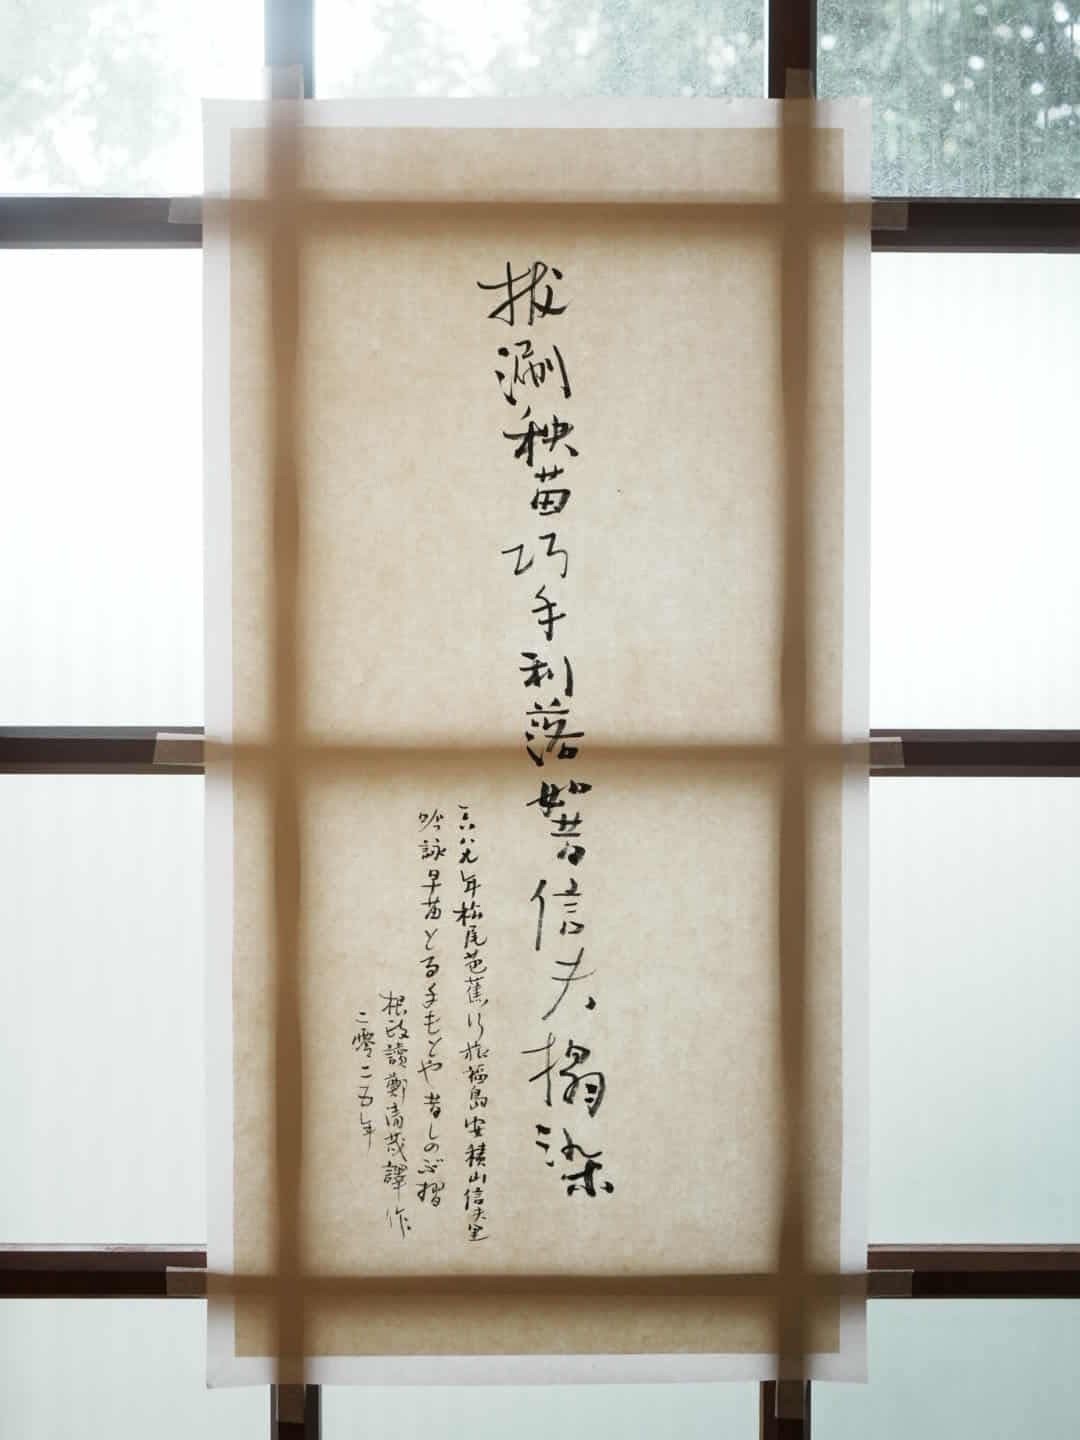 拔涮秧苗巧手利落如昔信夫搨染
一六八九年松尾芭蕉行旅福島安積山信夫里
吟詠早苗とる手もとや昔しのぶ摺
根政讀鄭清茂譯作
二零二五年